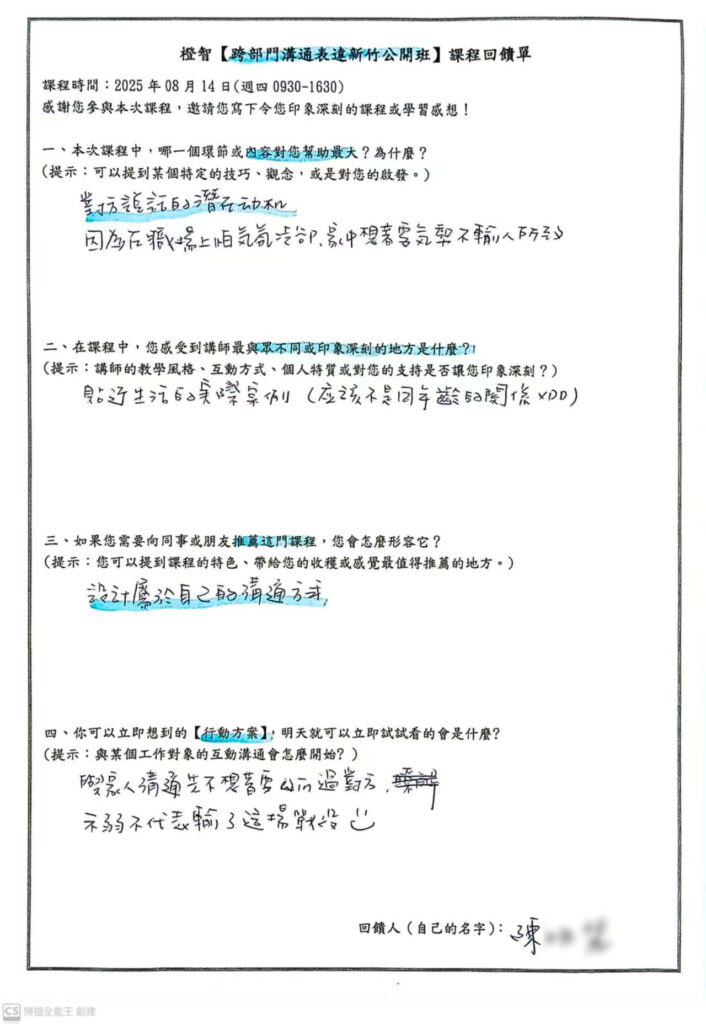 橙智【跨部門溝通表達新竹公開班】課程回饋單
課程時間：2025 年 08 月 14 日(週四 0930-1630)
感謝您參與本次課程，邀請您寫下令您印象深刻的課程或學習感想！
一、本次課程中，哪一個環節或內容對您幫助最大？為什麼？
(提示：可以提到某個特定的技巧、觀念，或是對您的啟發。)
對方談話的潛在动机
因為在職場上怕気氛冷卻、家中想著要気勢不輸人
二、在課程中，您感受到講師最與眾不同或印象深刻的地方是什麼？
(提示：講師的教學風格、互動方式、個人特質或對您的支持是否讓您印象深刻？)
貼近生活的實際案例 (應該不是同年齡的関係 XDD)
三、如果您需要向同事或朋友推薦這門課程，您會怎麼形容它？
(提示：您可以提到課程的特色、帶給您的收穫或感覺最值得推薦的地方。)
設計屬於自己的溝通方式,
四、你可以立即想到的【行動方案】，明天就可以立即試試看的會是什麼?
(提示：與某個工作對象的互動溝通會怎麼開始？)
與家人溝通先不想著要 過對方,
示弱不代表輸了這場戰役
回饋人（自己的名字）：陳
CS 掃描全能王 創建